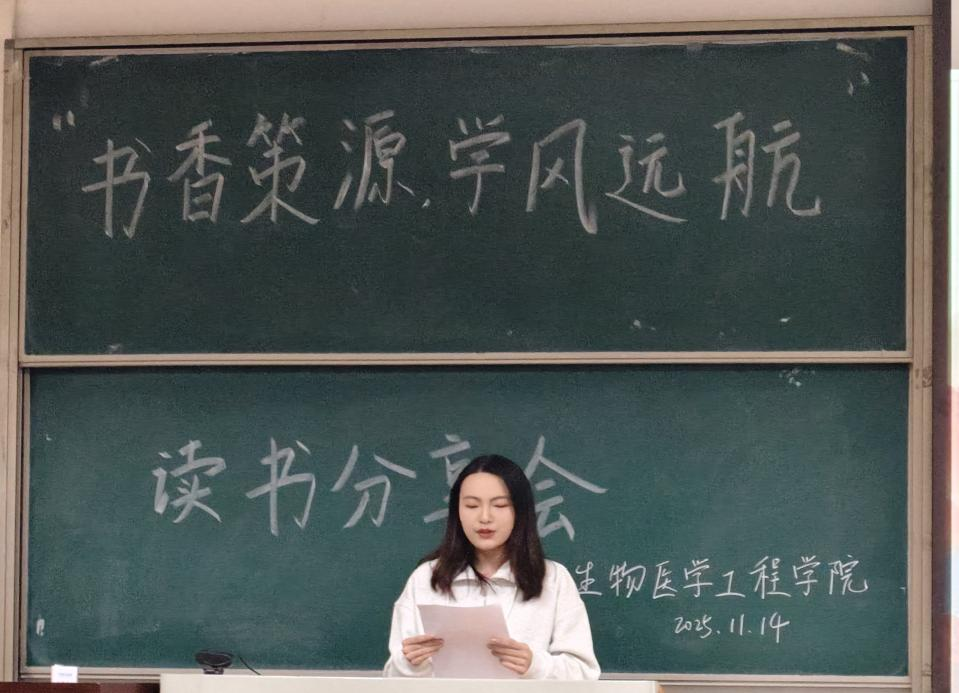 “书香策源,学风远航”
读书分享会
生物医学工程学院
2025.11.14